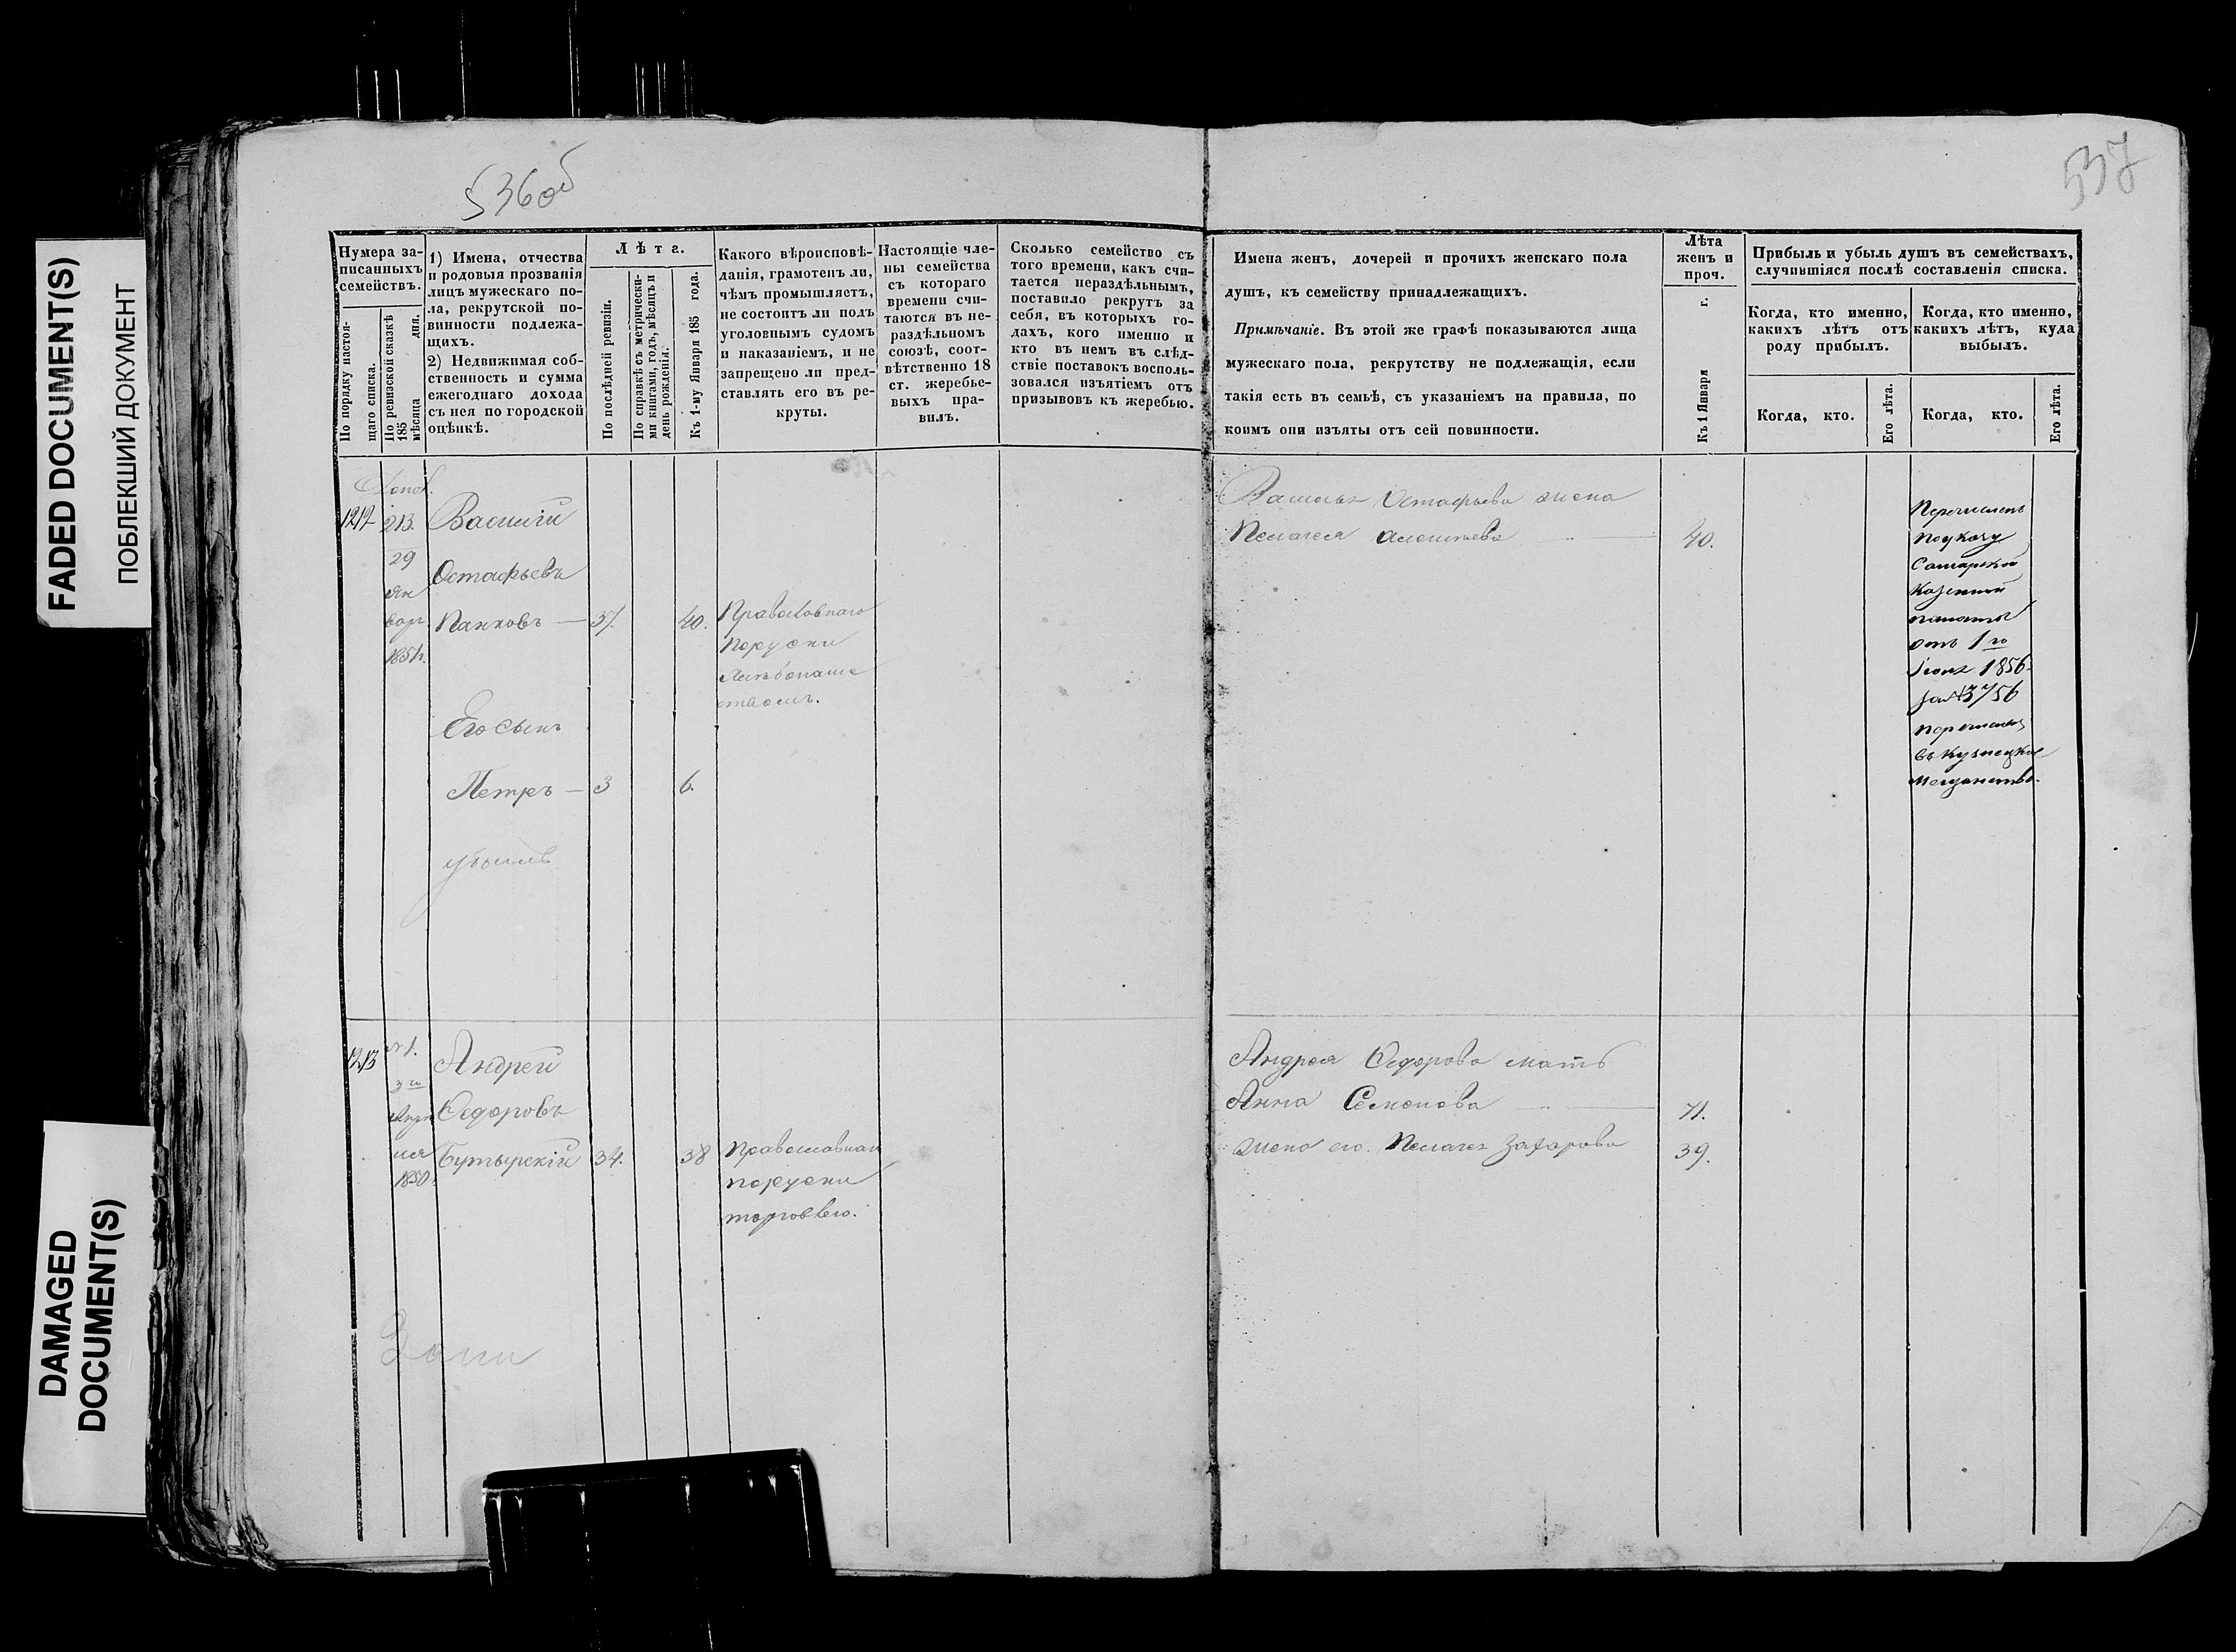 FADED DOCUMENT(S)
ПОБЛЕКШИЙ ДОКУМЕНТ
DAMAGED
DOCUMENT(S)
536об
Нумера за-
писанныхъ
семействъ.
По порядку настоя-
щаго списка.
По ревизской сказкѣ
185 дня.
мѣсяца
1) Имена, отчества
и родовыя прозванія
лицъ мужескаго по-
ла, рекрутской по-
винности подлежа-
щихъ.
2) Недвижимая соб-
ственность и сумма
ежегоднаго дохода
съ нея по городской
оцѣнкѣ.
Лѣта.
По послѣдней ревизіи.
По справкѣ съ метрически-
ми книгами, годъ, мѣсяцъ и
день рожденія.
Къ 1-му Января 185 года.
Какого вѣроисповѣ-
данія, грамотенъ ли,
чѣмъ промышляетъ,
не состоитъ ли подъ
уголовнымъ судомъ
и наказаніемъ, и не
запрещено ли пред-
ставлять его въ ре-
круты.
Настоящіе чле-
ны семейства
съ котораго
времени счи-
таются въ не-
раздѣльномъ
союзѣ, соот-
вѣтственно 18
ст. жеребье-
выхъ пра-
вилъ.
Сколько семейство съ
того времени, какъ счи-
тается нераздѣльнымъ,
поставило рекрутъ за
себя, въ которыхъ го-
дахъ, кого именно и
кто въ немъ въ слѣд-
ствіе поставокъ восполь-
зовался изъятіемъ отъ
призывовъ къ жеребью.
Допол.
1212 213. Василій
29 Остафьевъ
Ян
вар. Панковъ — 37. 40. Православнаго
1851 г. Порусски
Хлѣбопаше
ствомъ.
Его сынъ
Петръ — 3 6.
убыль
1213 №1. Андрей
3го Ѳедоровъ
Апре
ля Бутырскій 34. 38 Православнаго
1850. порусски
торговлею.
537
Имена женъ, дочерей и прочихъ женскаго пола
душъ, къ семейству принадлежащихъ.
Примѣчаніе. Въ этой же графѣ показываются лица
мужескаго пола, рекрутству не подлежащія, если
такія есть въ семьѣ, съ указаніемъ на правила, по
коимъ они изъяты отъ сей повинности.
Лѣта
женъ и
проч.
Къ 1 Января г.
Прибыль и убыль душъ въ семействахъ,
случившіяся послѣ составленія списка.
Когда, кто именно,
какихъ лѣтъ отъ
роду прибылъ.
Когда, кто именно,
какихъ лѣтъ, куда
выбылъ.
Когда, кто.
Его лѣта.
Когда, кто.
Его лѣта.
Василья Остафьева жена
Пелагея 40.
Перечисленъ
по указу
Самарской
Казенной
палаты
отъ 1го
1856.
за №3756
перечисленъ
въ Кузнецкое
Мещанство.
Андрея Ѳедорова мать
Анна Семенова 71.
жена его. Пелагея Захарова 39.